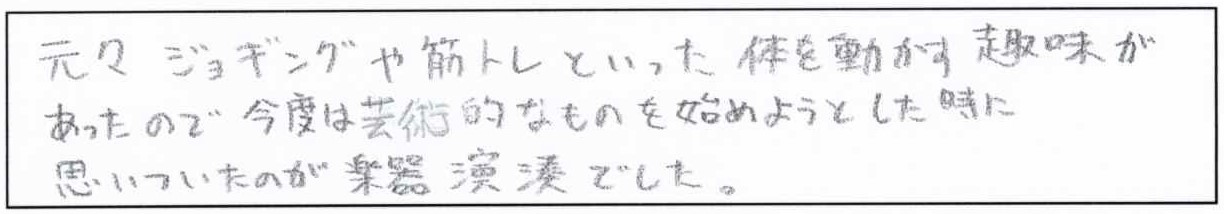 元々ジョギングや筋トレといった体を動かす趣味が
あったので今度は芸術的なものを始めようとした時に
思いついたのが楽器演湊でした。